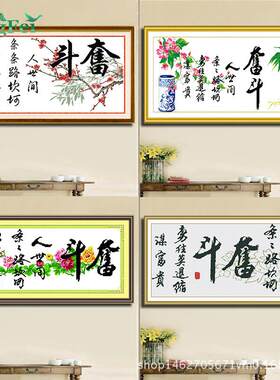 Fei
奮斗
人世间
条条路坎坷
奮斗
人世间
条条路坎坷
勇往莫退缩
谋富贵
奮斗
人世间
条条路坎坷
奮斗
勇往莫退缩
谋富贵